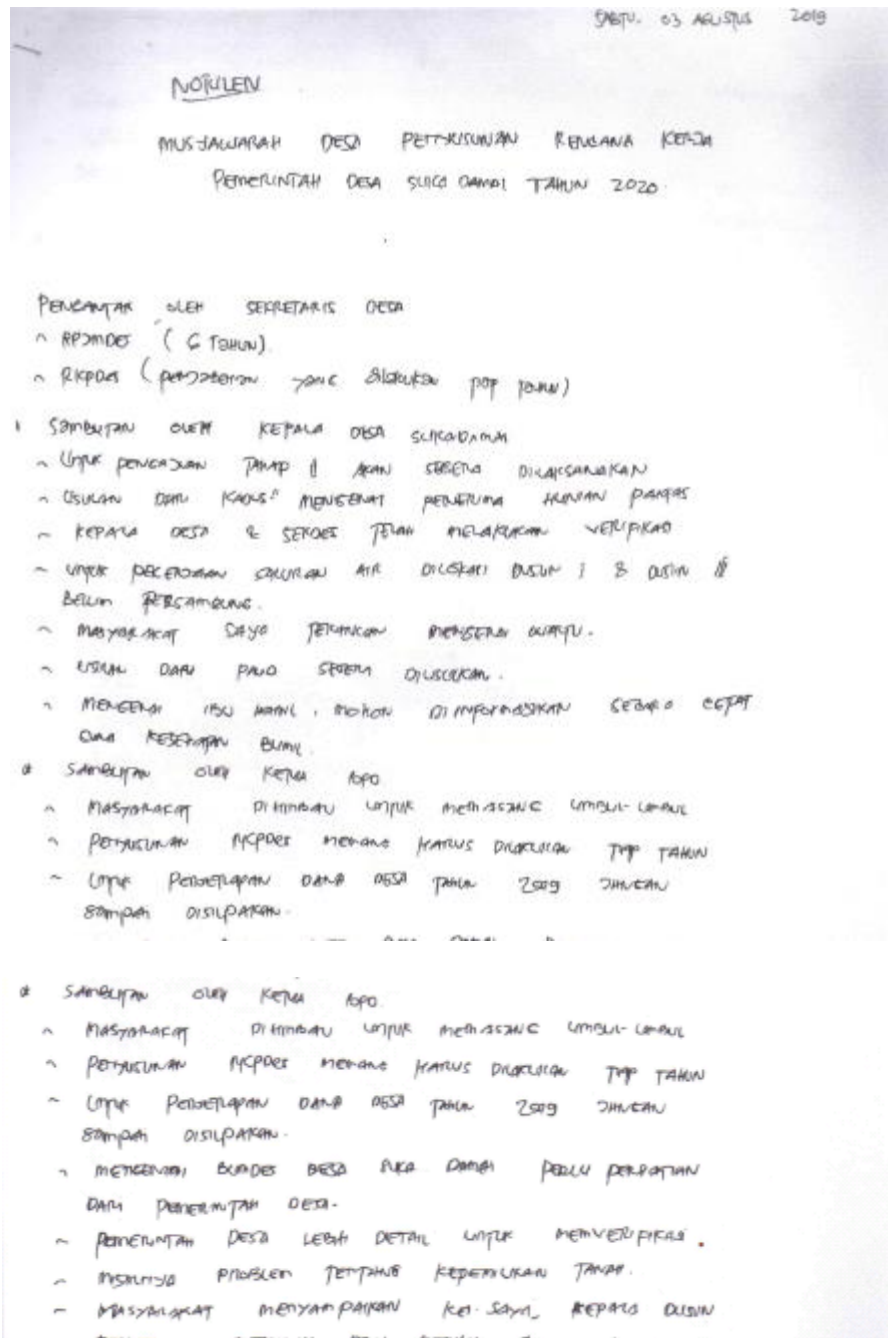 SABTU. 03 AGUSTUS 2019
NOTULEN
MUSYAWARAH DESA PENYUSUNAN RENCANA KERJA
PEMERINTAH DESA SUKA DAMAI TAHUN 2020.
PENGANTAR OLEH SEKRETARIS DESA
~ RPJMDES (6 TAHUN)
~ RKPDes (penjabaran yang dilakukan tiap tahun)
Sambutan OLEH KEPALA DESA SUKADAMAI
~ Untuk PENGAJUAN TAHAP II AKAN SEGERA DILAKSANAKAN
~ USULAN DARI KADUS" MENGENAI PENERIMA HUNIAN PANTAS
~ KEPALA DESA & SEKDES TELAH MELAKUKAN VERIFIKASI
~ UNTUK PEKERJAAN SALURAN AIR DILOKASI DUSUN I & DUSUN III
BELUM BERSAMBUNG.
~ MASYARAKAT SAYA TEKANKAN MENGENAI WAKTU.
~ USULAN DARI PAUD SEGERA DIUSULKAN.
~ MENGENAI IBU HAMIL, MOHON DI INFORMASIKAN SECARA CEPAT
GUNA KESEHATAN BUMIL.
SAMBUTAN OLEH KETUA BPD
~ MASYARAKAT DI HIMBAU UNTUK MEMASANG UMBUL-UMBUL
~ PENYUSUNAN RKPDes MEMANG HARUS DILAKUKAN TIAP TAHUN
~ UNTUK PENYERAPAN DANA DESA TAHUN 2019 JANGAN
SAMPAI DISILPAKAN.
SAMBUTAN OLEH KETUA BPD.
~ MASYARAKAT DI HIMBAU UNTUK MEMASANG UMBUL-UMBUL
~ PENYUSUNAN RKPDes MEMANG HARUS DILAKUKAN TIAP TAHUN
~ UNTUK PENYERAPAN DANA DESA TAHUN 2019 JANGAN
SAMPAI DISILPAKAN.
~ MENGENAI BUMDES DESA SUKA DAMAI PERLU PERHATIAN
DARI PEMERINTAH DESA.
~ PEMERINTAH DESA LEBIH DETAIL UNTUK MEMVERIFIKASI.
~ MISALNYA PROBLEM TENTANG KEPEMILIKAN TANAH.
~ MASYARAKAT MENYAMPAIKAN KE SAYA, KEPALA DUSUN